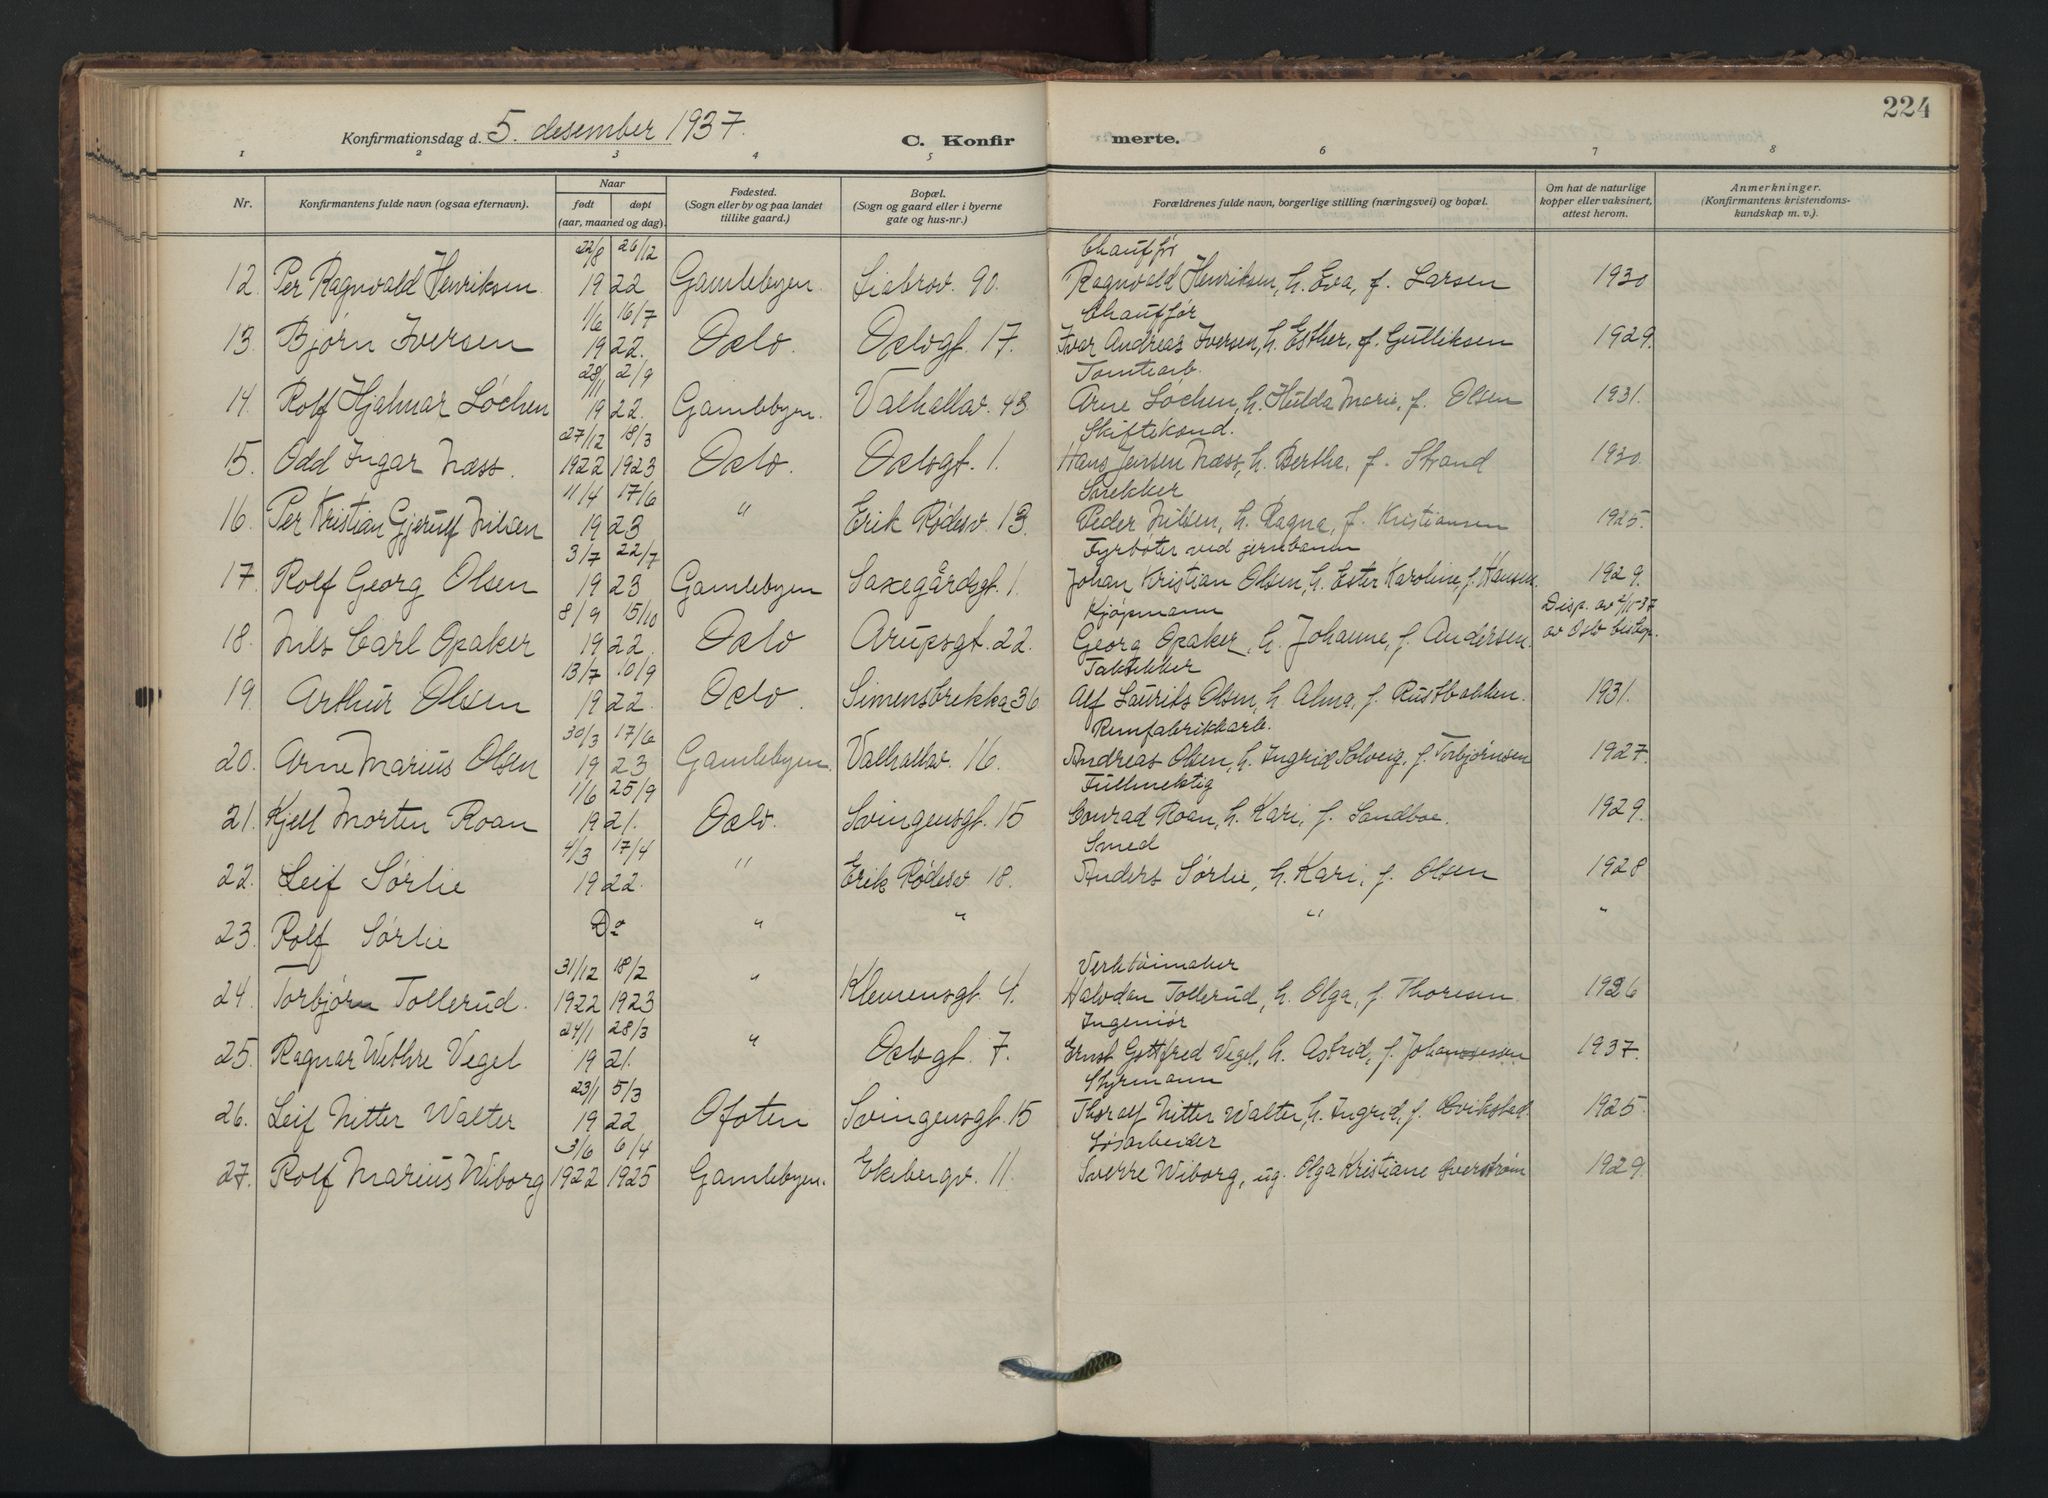 224
Konfirmationsdag d. 5. desember 1937. C. Konfir merte.
1 2 3 4 5 6 7 8
Nr. Konfirmantens fulde navn (ogsaa efternavn). Naar født døpt (aar, maaned og dag). Fødested. (Sogn eller by og paa landet tillike gaard.) Bopæl. (Sogn og gaard eller i byerne gate og hus-nr.) Forældrenes fulde navn, borgerlige stilling (næringsvei) og bopæl. Om hat de naturlige kopper eller vaksinert, attest herom. Anmerkninger. (Konfirmantens kristendoms-kundskap m. v.).
22/8 26/12 Chauffør
12. Per Ragnvald Henriksen 1922 Gamlebyen. Ljabrov. 90. Ragnvald Henriksen, h. Eva, f. Larsen 1930
1/6 16/7 Chauffør
13. Bjørn Iversen 1922. Oslo. Oslogt. 17. Ivar Andreas Iversen, h. Esther, f. Gulliksen 1929.
28/11 2/9 Tomtearb.
14. Rolf Hjalmar Løchen 1922. Gamlebyen. Valhallav. 43. Arne Løchen, h. Hulda Marie, f. Olsen 1931.
27/12 18/3 Skiftekond.
15. Odd Ingar Næss. 1922 1923 Oslo. Oslogt. 1. Hans Jensen Næss, h. Bertha, f. Strand 1930.
11/4 17/6 Snekker
16. Per Kristian Gjerulf Nilsen 1923 " Erik Rødesv. 13. Peder Nilsen, h. Ragna, f. Kristiansen 1925.
3/7 22/7 Fyrbøter ved jernbanen
17. Rolf Georg Olsen 1923 Gamlebyen Saxegårdsgt. 1. Johan Kristian Olsen, h. Ester Karoline, f. Hansen. 1929.
8/9 15/10 Kjøpmann Disp. av 2/11-37
18. Nils Carl Opaker 1922. Oslo Arupsgt. 22. Georg Opaker, h. Johanne, f. Andersen. av Oslo biskop.
13/7 10/9 Taktekker
19. Arthur Olsen 1922. Oslo. Simensbrekka 36 Alf Laurits Olsen, h. Alma, f. Rustbakken. 1931.
30/3 17/6 Remfabrikkarb.
20. Arne Marius Olsen 1923 Gamlebyen. Valhallav. 16. Andreas Olsen, h. Ingrid Solveig, f. Torbjørnsen 1927.
1/6 25/9 Fullmektig
21. Kjell Morten Roan 1921. Oslo. Svingensgt. 15 Conrad Roan, h. Kari, f. Sandboe. 1929.
4/3 17/4 Smed
22. Leif Sørlie 1922. " Erik Rødesv. 18. Anders Sørlie, h. Kari, f. Olsen 1928
23. Rolf Sørlie Do " " " "
31/12 18/2 Verktøimaker
24. Torbjørn Tollerud. 1922 1923 " Klemensgt. 4. Halvdan Tollerud, h. Olga, f. Thoresen 1926
24/1 28/3 Ingeniør
25. Ragnar Wethre Vegel 1921. " Oslogt. 7. Ernst Gottfred Vegel, h. Astrid, f. Johannessen 1937.
23/1 5/3 Styrmann
26. Leif Nitter Walter 1922 Ofoten Svingensgt. 15 Thoralf Nitter Walter, h. Ingrid, f. Qvikstad. 1925.
3/6 6/4 Løsarbeider
27. Rolf Marius Wiborg 1922 1925 Gamlebyen. Ekebergv. 11. Sverre Wiborg, ug. Olga Kristiane Sverstrøm 1929.